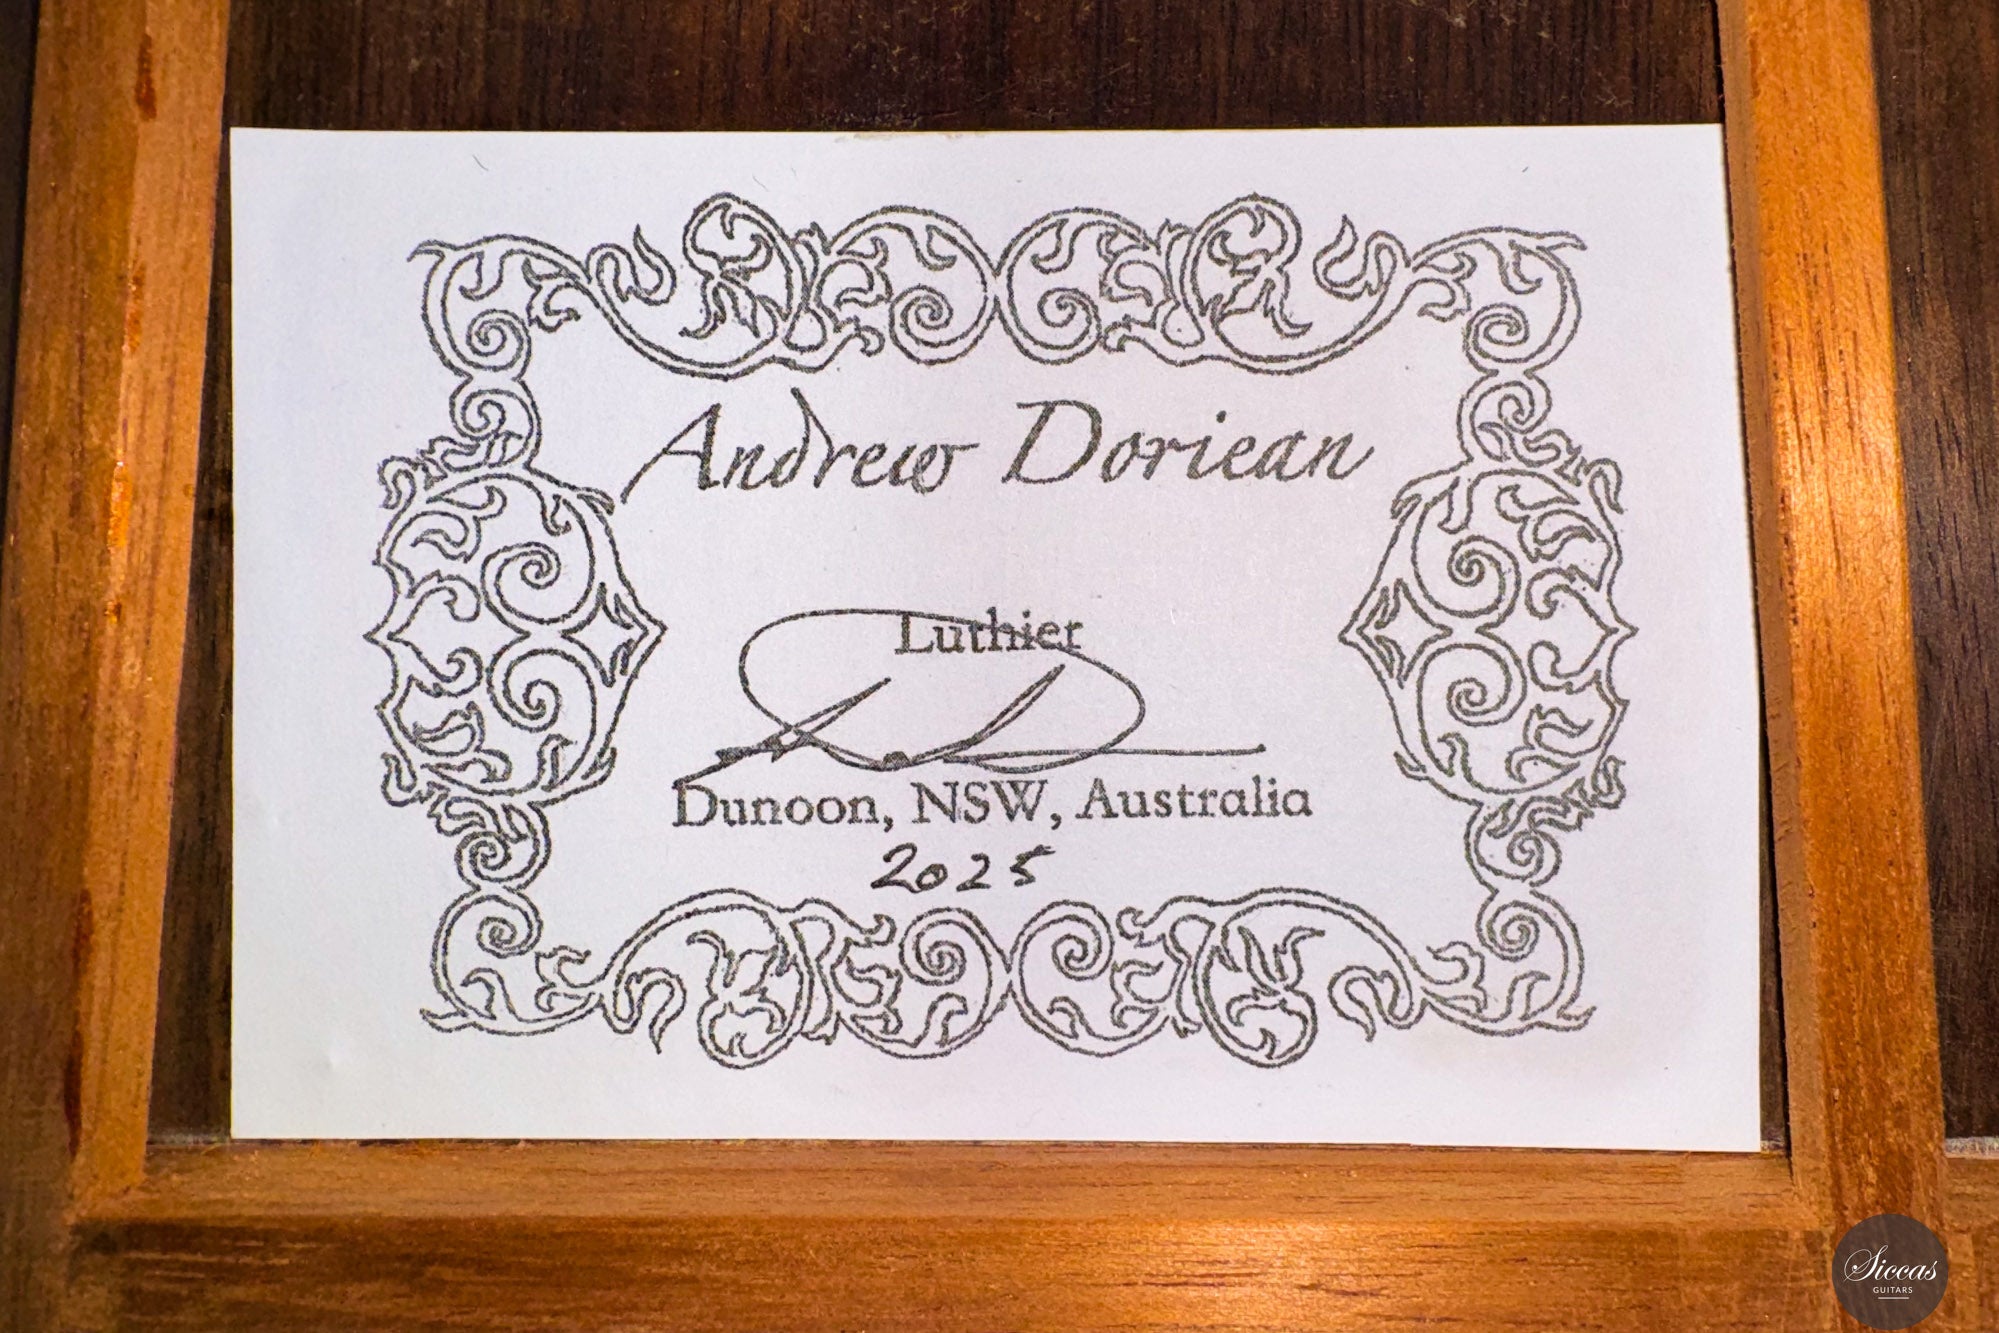 Andrew Doriean
Luthier
Dunoon, NSW, Australia
2025
Siccas
GUITARS